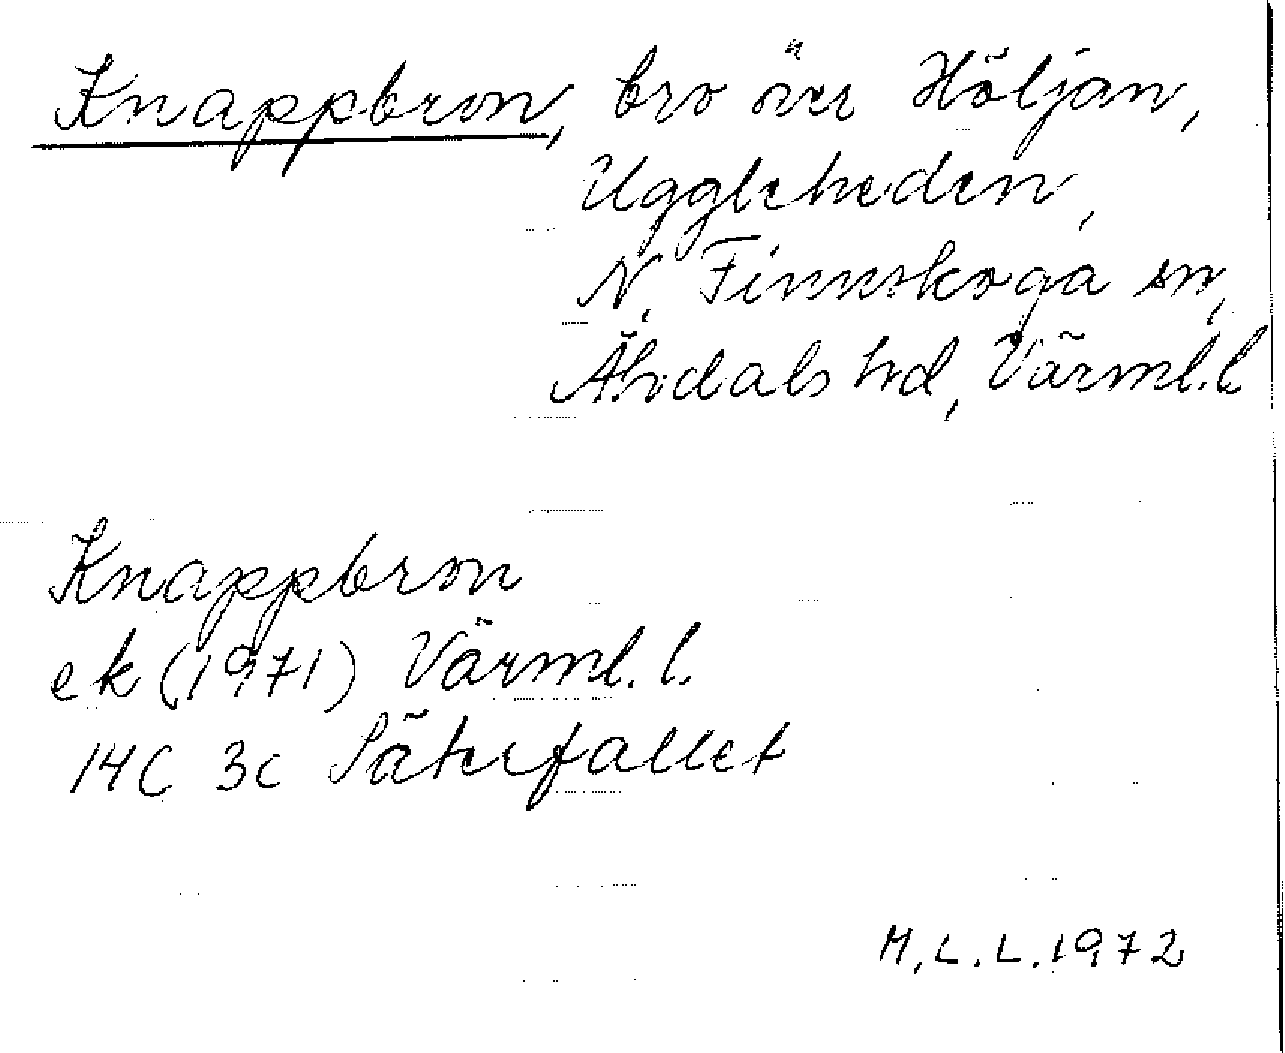 Knappbron, bro över Höljan,
Uggleheden,
N. Finnskoga sn,
Älvdals hd, Värml. l
Knappbron
ek (1971) Värml. l.
14C 3c Säterfallet
M.L.L. 1972